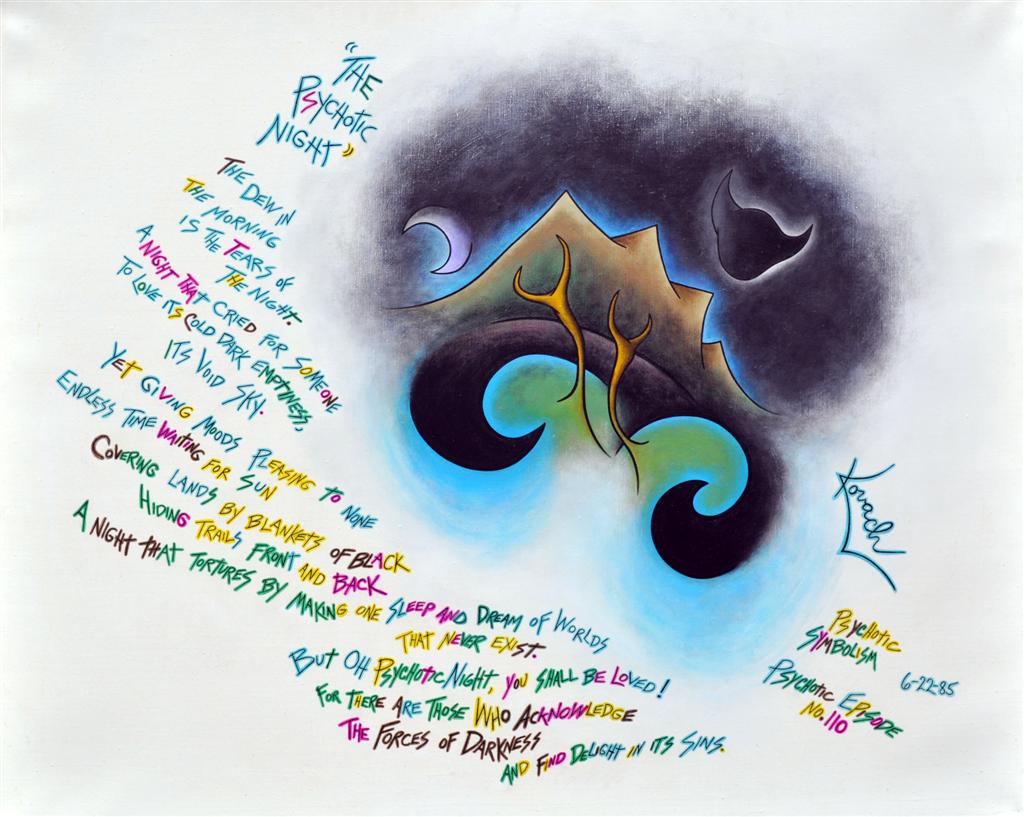 "THE
PSYCHOTIC
NIGHT"
THE DEW IN
THE MORNING
IS THE TEARS OF
THE NIGHT.
A NIGHT THAT CRIED FOR SOMEONE
TO LOVE ITS COLD DARK EMPTINESS,
ITS VOID SKY.
YET GIVING MOODS PLEASING TO NONE
ENDLESS TIME WAITING FOR SUN
COVERING LANDS BY BLANKETS OF BLACK
HIDING TRAILS FRONT AND BACK
A NIGHT THAT TORTURES BY MAKING ONE SLEEP AND DREAM OF WORLDS
THAT NEVER EXIST.
BUT OH PSYCHOTIC NIGHT, YOU SHALL BE LOVED!
FOR THERE ARE THOSE WHO ACKNOWLEDGE
THE FORCES OF DARKNESS
AND FIND DELIGHT IN ITS SINS.
Kovach
PSYCHOTIC
SYMBOLISM
6-22-85
PSYCHOTIC EPISODE
NO. 110